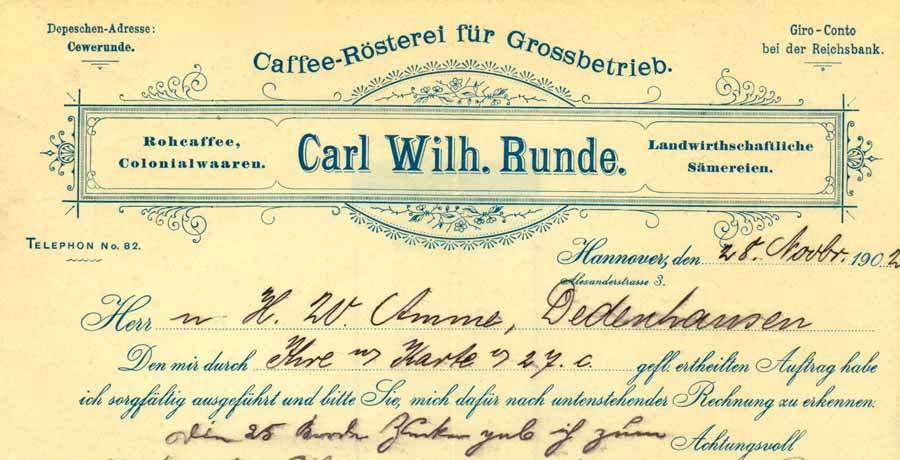 Depeschen-Adresse:
Cewerunde.
Giro-Conto
bei der Reichsbank.
Caffee-Rösterei für Grossbetrieb.
Rohcaffee,
Colonialwaaren.
Carl Wilh. Runde.
Landwirthschaftliche
Sämereien.
TELEPHON No. 82.
Hannover, den 28. Novbr. 1902
Alexanderstrasse 3.
Herr H. W. Amme, Dedenhausen
Den mir durch Ihre Karte 27. c. gefl. ertheilten Auftrag habe
ich sorgfältig ausgeführt und bitte Sie, mich dafür nach untenstehender Rechnung zu erkennen.
25 gab ich zum
Achtungsvoll